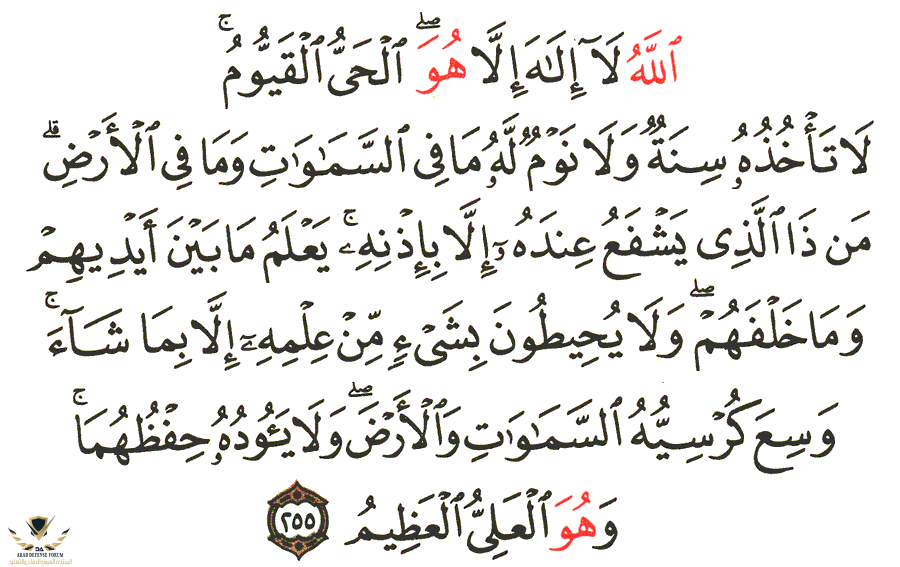 ٱللَّهُ لَآ إِلَـٰهَ إِلَّا هُوَ ۖ ٱلْحَىُّ ٱلْقَيُّومُ ۚ
لَا تَأْخُذُهُۥ سِنَةٌ وَلَا نَوْمٌ لَّهُۥ مَا فِى ٱلسَّمَـٰوَٰتِ وَمَا فِى ٱلْأَرْضِ ۗ
مَن ذَا ٱلَّذِى يَشْفَعُ عِندَهُۥٓ إِلَّا بِإِذْنِهِۦ ۚ يَعْلَمُ مَا بَيْنَ أَيْدِيهِمْ
وَمَا خَلْفَهُمْ ۖ وَلَا يُحِيطُونَ بِشَىْءٍ مِّنْ عِلْمِهِۦٓ إِلَّا بِمَا شَآءَ ۚ
وَسِعَ كُرْسِيُّهُ ٱلسَّمَـٰوَٰتِ وَٱلْأَرْضَ ۖ وَلَا يَـُٔودُهُۥ حِفْظُهُمَا ۚ
وَهُوَ ٱلْعَلِىُّ ٱلْعَظِيمُ ٢٥٥
DA
ARAB DEFENSE FORUM